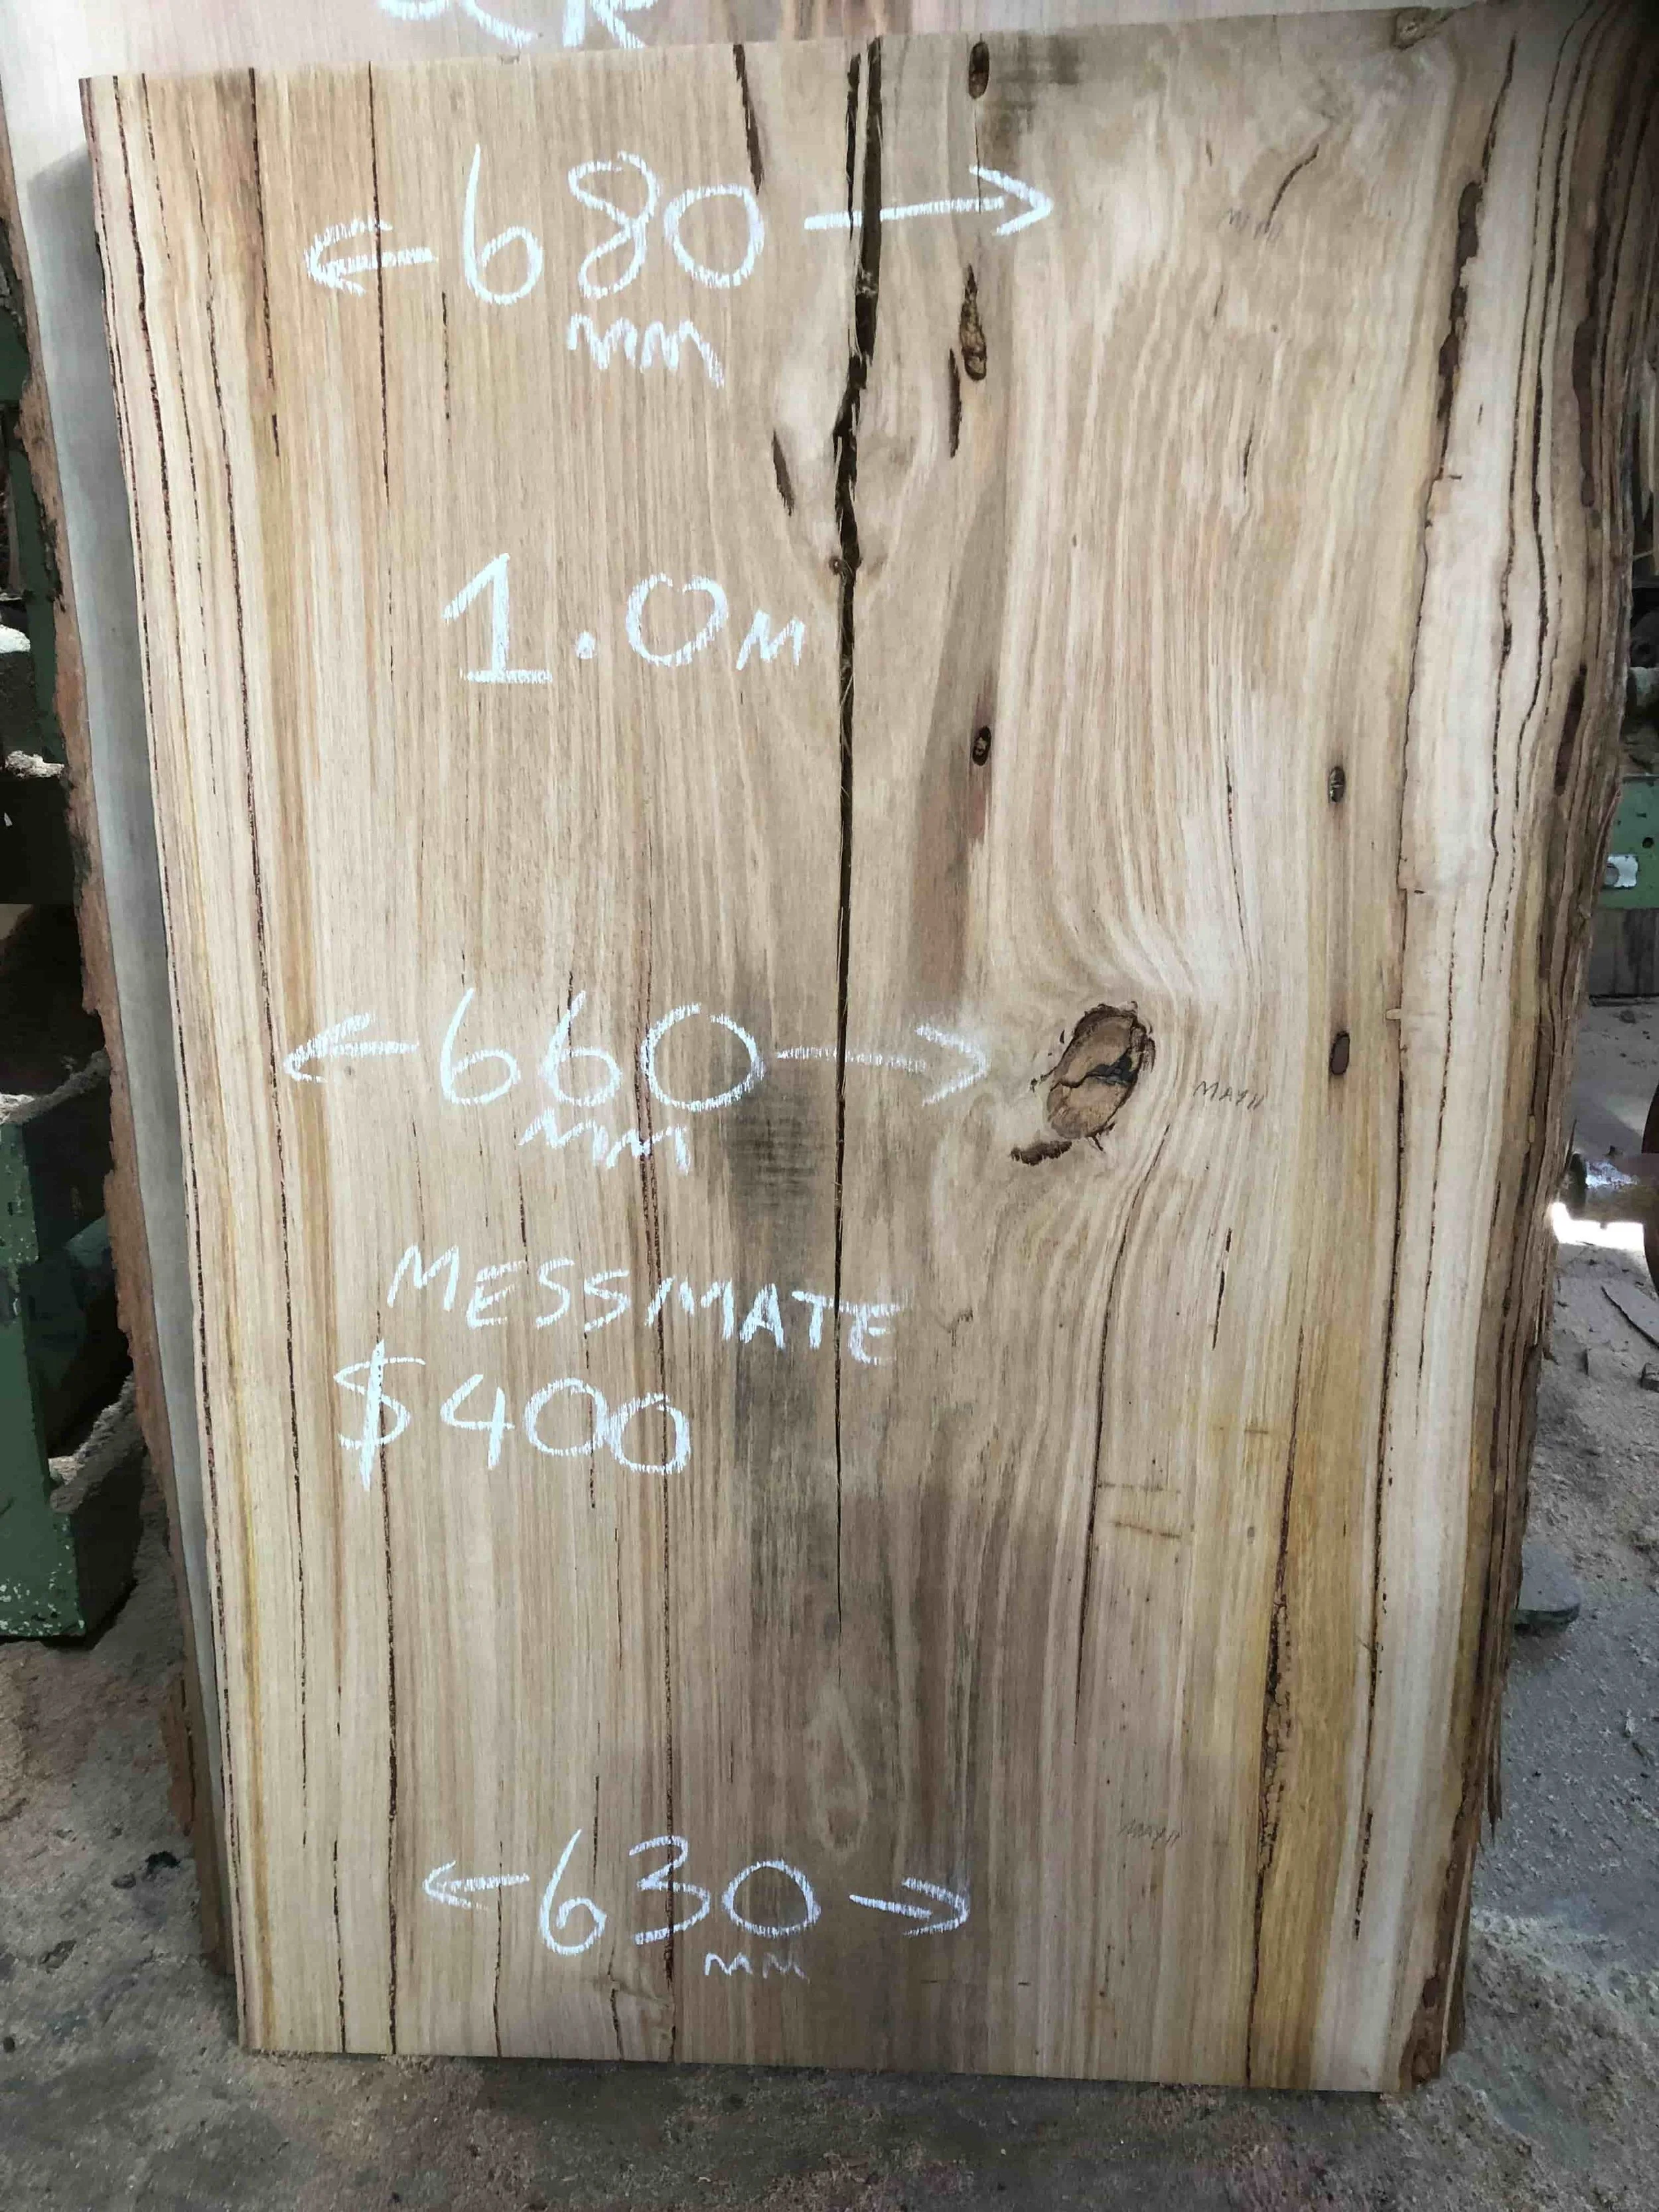 ← 680 →
mm
1.0m
← 660 →
mm
MESSMATE
$400
← 630 →
mm